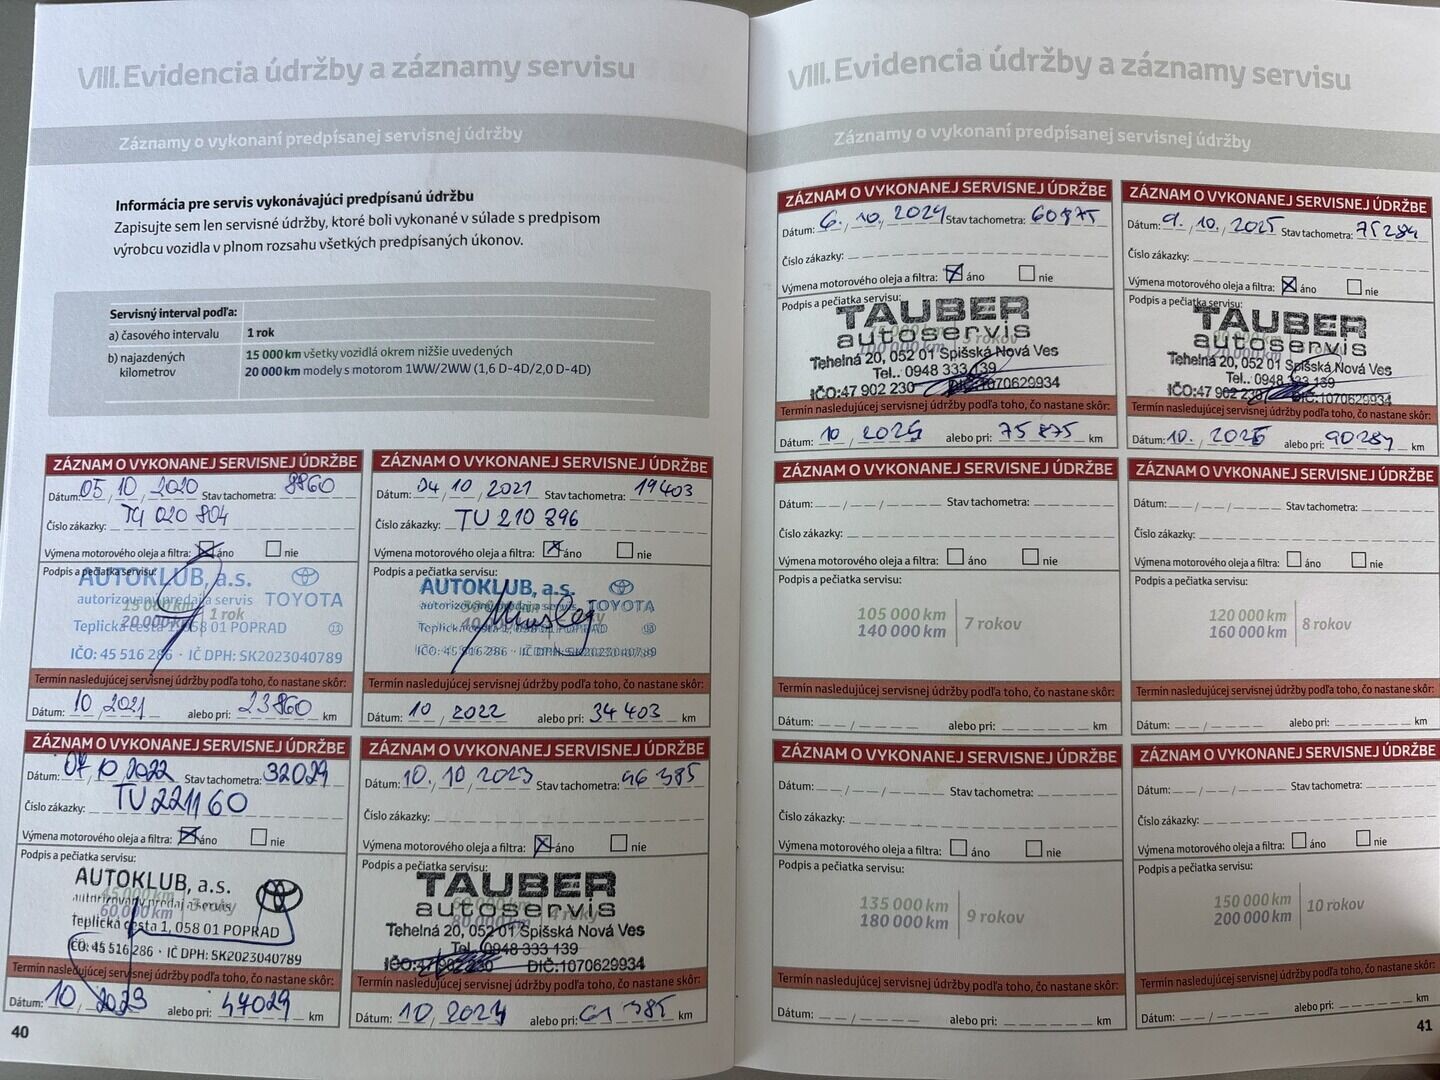 VIII. Evidencia údržby a záznamy servisu
Záznamy o vykonaní predpísanej servisnej údržby
Informácia pre servis vykonávajúci predpísanú údržbu
Zapisujte sem len servisné údržby, ktoré boli vykonané v súlade s predpisom
výrobcu vozidla v plnom rozsahu všetkých predpísaných úkonov.
Servisný interval podľa:
a) časového intervalu 1 rok
b) najazdených 15 000 km všetky vozidlá okrem nižšie uvedených
kilometrov 20 000 km modely s motorom 1WW/2WW (1,6 D-4D/2,0 D-4D)
ZÁZNAM O VYKONANEJ SERVISNEJ ÚDRŽBE
Dátum: 05 / 10 / 2020 Stav tachometra: 8860
Číslo zákazky: TU 020 804
Výmena motorového oleja a filtra: áno nie
Podpis a pečiatka servisu:
AUTOKLUB, a.s.
autorizovaný predaj a servis TOYOTA
15 000 km
20 000 km 1 rok
Teplická cesta 1, 058 01 POPRAD
IČO: 45 516 286 · IČ DPH: SK2023040789
Termín nasledujúcej servisnej údržby podľa toho, čo nastane skôr:
Dátum: 10 / 2021 alebo pri: 23860 km
ZÁZNAM O VYKONANEJ SERVISNEJ ÚDRŽBE
Dátum: 04 / 10 / 2021 Stav tachometra: 19403
Číslo zákazky: TU 210 896
Výmena motorového oleja a filtra: áno nie
Podpis a pečiatka servisu:
AUTOKLUB, a.s.
autorizovaný predaj a servis TOYOTA
Teplická cesta 1, 058 01 POPRAD
IČO: 45 516 286 · IČ DPH: SK2023040789
Termín nasledujúcej servisnej údržby podľa toho, čo nastane skôr:
Dátum: 10 / 2022 alebo pri: 34 403 km
ZÁZNAM O VYKONANEJ SERVISNEJ ÚDRŽBE
Dátum: 07 / 10 / 2022 Stav tachometra: 32029
Číslo zákazky: TU 221160
Výmena motorového oleja a filtra: áno nie
Podpis a pečiatka servisu:
AUTOKLUB, a.s.
autorizovaný predaj a servis
45 000 km
60 000 km 3 roky
Teplická cesta 1, 058 01 POPRAD
IČO: 45 516 286 · IČ DPH: SK2023040789
Termín nasledujúcej servisnej údržby podľa toho, čo nastane skôr:
Dátum: 10 / 2023 alebo pri: 47029 km
ZÁZNAM O VYKONANEJ SERVISNEJ ÚDRŽBE
Dátum: 10. / 10 / 2023 Stav tachometra: 46 385
Číslo zákazky:
Výmena motorového oleja a filtra: áno nie
Podpis a pečiatka servisu:
TAUBER
autoservis
60 000 km
80 000 km 4 roky
Tehelná 20, 052 01 Spišská Nová Ves
Tel. 0948 333 139
IČO:47 902 230 DIČ:1070629934
Termín nasledujúcej servisnej údržby podľa toho, čo nastane skôr:
Dátum: 10 / 2024 alebo pri: 61 385 km
40
VIII. Evidencia údržby a záznamy servisu
Záznamy o vykonaní predpísanej servisnej údržby
ZÁZNAM O VYKONANEJ SERVISNEJ ÚDRŽBE
Dátum: 6. / 10. / 2024 Stav tachometra: 60875
Číslo zákazky:
Výmena motorového oleja a filtra: áno nie
Podpis a pečiatka servisu:
TAUBER
autoservis
100 000 km
Tehelná 20, 052 01 Spišská Nová Ves
Tel.: 0948 333 139
IČO:47 902 230 DIČ:1070629934
Termín nasledujúcej servisnej údržby podľa toho, čo nastane skôr:
Dátum: 10 / 2025 alebo pri: 75 875 km
ZÁZNAM O VYKONANEJ SERVISNEJ ÚDRŽBE
Dátum: 9. / 10. / 2025 Stav tachometra: 75284
Číslo zákazky:
Výmena motorového oleja a filtra: áno nie
Podpis a pečiatka servisu:
TAUBER
autoservis
120 000 km
Tehelná 20, 052 01 Spišská Nová Ves
Tel.: 0948 333 139
IČO:47 902 230 DIČ:1070629934
Termín nasledujúcej servisnej údržby podľa toho, čo nastane skôr:
Dátum: 10. / 2026 alebo pri: 90284 km
ZÁZNAM O VYKONANEJ SERVISNEJ ÚDRŽBE
Dátum: / / Stav tachometra:
Číslo zákazky:
Výmena motorového oleja a filtra: áno nie
Podpis a pečiatka servisu:
105 000 km
140 000 km 7 rokov
Termín nasledujúcej servisnej údržby podľa toho, čo nastane skôr:
Dátum: / / alebo pri: km
ZÁZNAM O VYKONANEJ SERVISNEJ ÚDRŽBE
Dátum: / / Stav tachometra:
Číslo zákazky:
Výmena motorového oleja a filtra: áno nie
Podpis a pečiatka servisu:
120 000 km
160 000 km 8 rokov
Termín nasledujúcej servisnej údržby podľa toho, čo nastane skôr:
Dátum: / / alebo pri: km
ZÁZNAM O VYKONANEJ SERVISNEJ ÚDRŽBE
Dátum: / / Stav tachometra:
Číslo zákazky:
Výmena motorového oleja a filtra: áno nie
Podpis a pečiatka servisu:
135 000 km
180 000 km 9 rokov
Termín nasledujúcej servisnej údržby podľa toho, čo nastane skôr:
Dátum: / / alebo pri: km
ZÁZNAM O VYKONANEJ SERVISNEJ ÚDRŽBE
Dátum: / / Stav tachometra:
Číslo zákazky:
Výmena motorového oleja a filtra: áno nie
Podpis a pečiatka servisu:
150 000 km
200 000 km 10 rokov
Termín nasledujúcej servisnej údržby podľa toho, čo nastane skôr:
Dátum: / / alebo pri: km
41